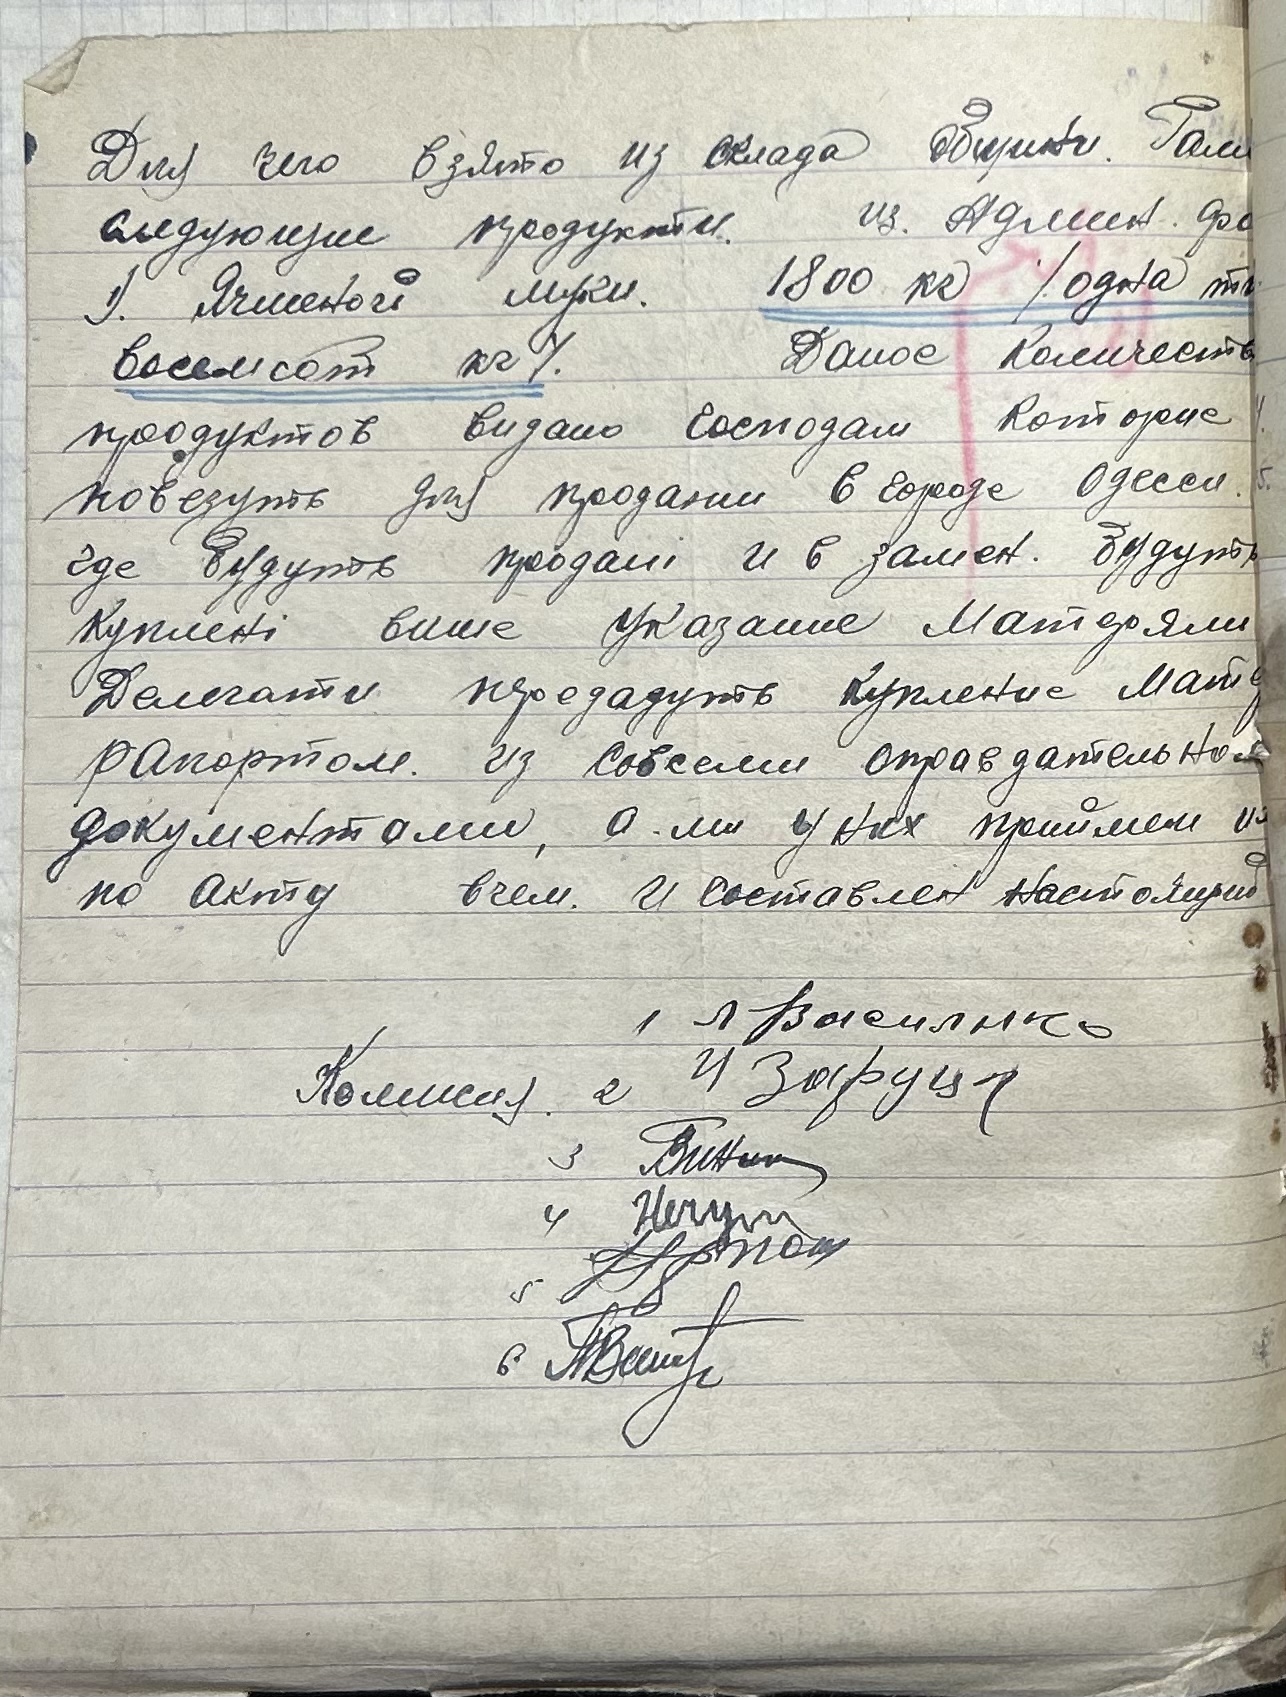 Для чего взято из склада Общини. Гали
следующие продукти. из. Админ. фо
1). Ячменогі муки. 1800 кг /одна ти
восемсот кг/. Даное количеств
продуктов видано господам которие
повезуть для продажи в городе Одесси.
где будуть продані и в замен. будуть
куплені више указание Матеряли
Делегати предадуть купление Мате
рапортом. из совсеми оправдательном
документами, а ми у них приймем из
по акту вчем. и составлен настоящий
1 Л Василько
Комисия. 2 И Заруц
3
4
5
6